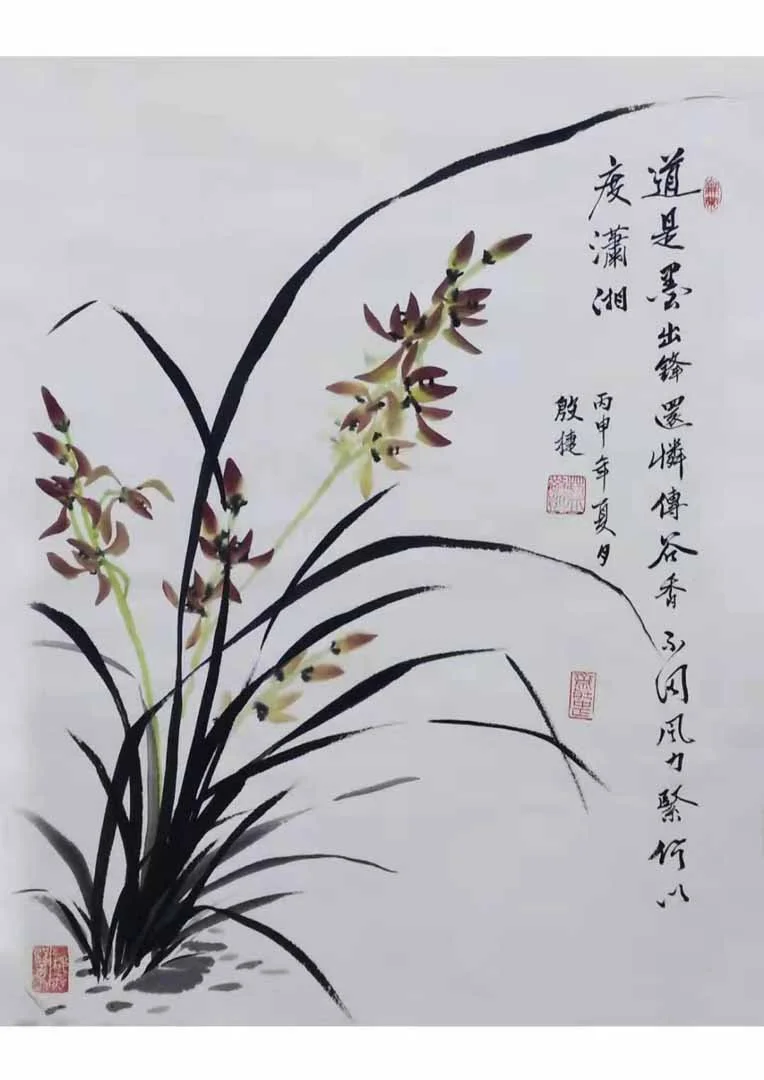 道是墨出鋒還憐傳谷香不因風力緊何以
度瀟湘
丙申年夏月
殷捷